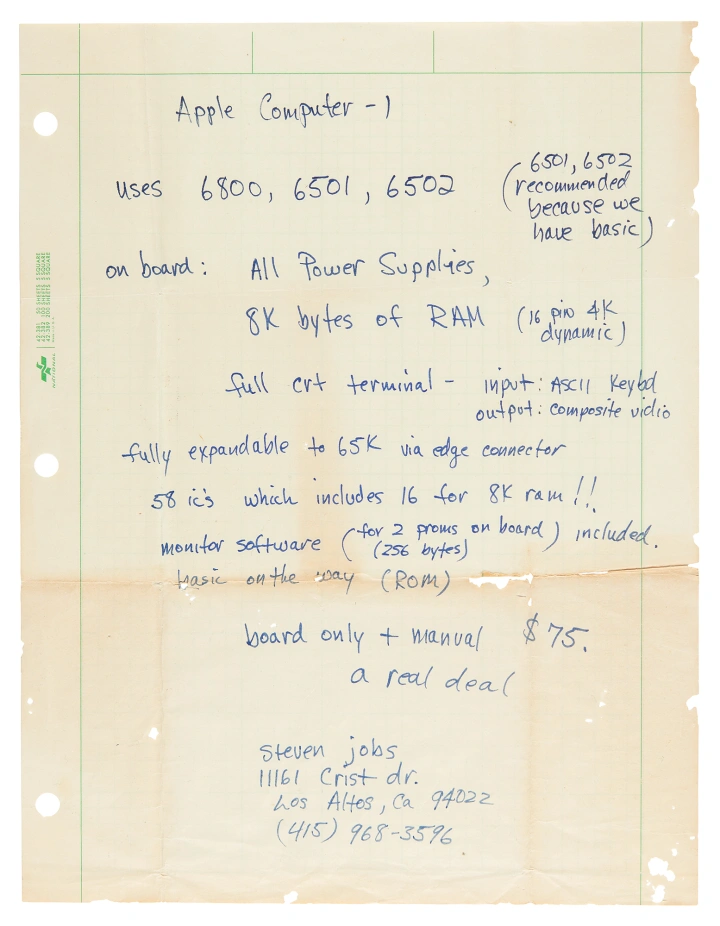 Apple Computer - 1
uses 6800, 6501, 6502
(6501, 6502
recommended
because we
have basic)
on board: All Power Supplies,
8K bytes of RAM (16 pin 4K
dynamic)
full crt terminal - input: ASCII Keybd
output: composite vidio
fully expandable to 65K via edge connector
58 ic's which includes 16 for 8K ram!!
monitor software (for 2 proms on board) included.
(256 bytes)
basic on the way (ROM)
board only + manual $75.
a real deal
steven jobs
11161 Crist dr.
Los Altos, Ca 94022
(415) 968-3596